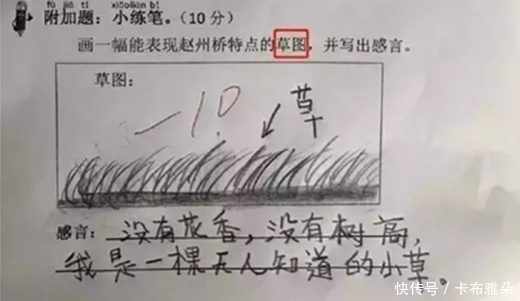 fù jiā tí xiǎoliàn bǐ
附加题：小练笔。（10分）
画一幅能表现赵州桥特点的草图，并写出感言。
草图：
-10
草
感言：没有花香，没有树高，
我是一棵无人知道的小草。
快传号／卡布雅朵